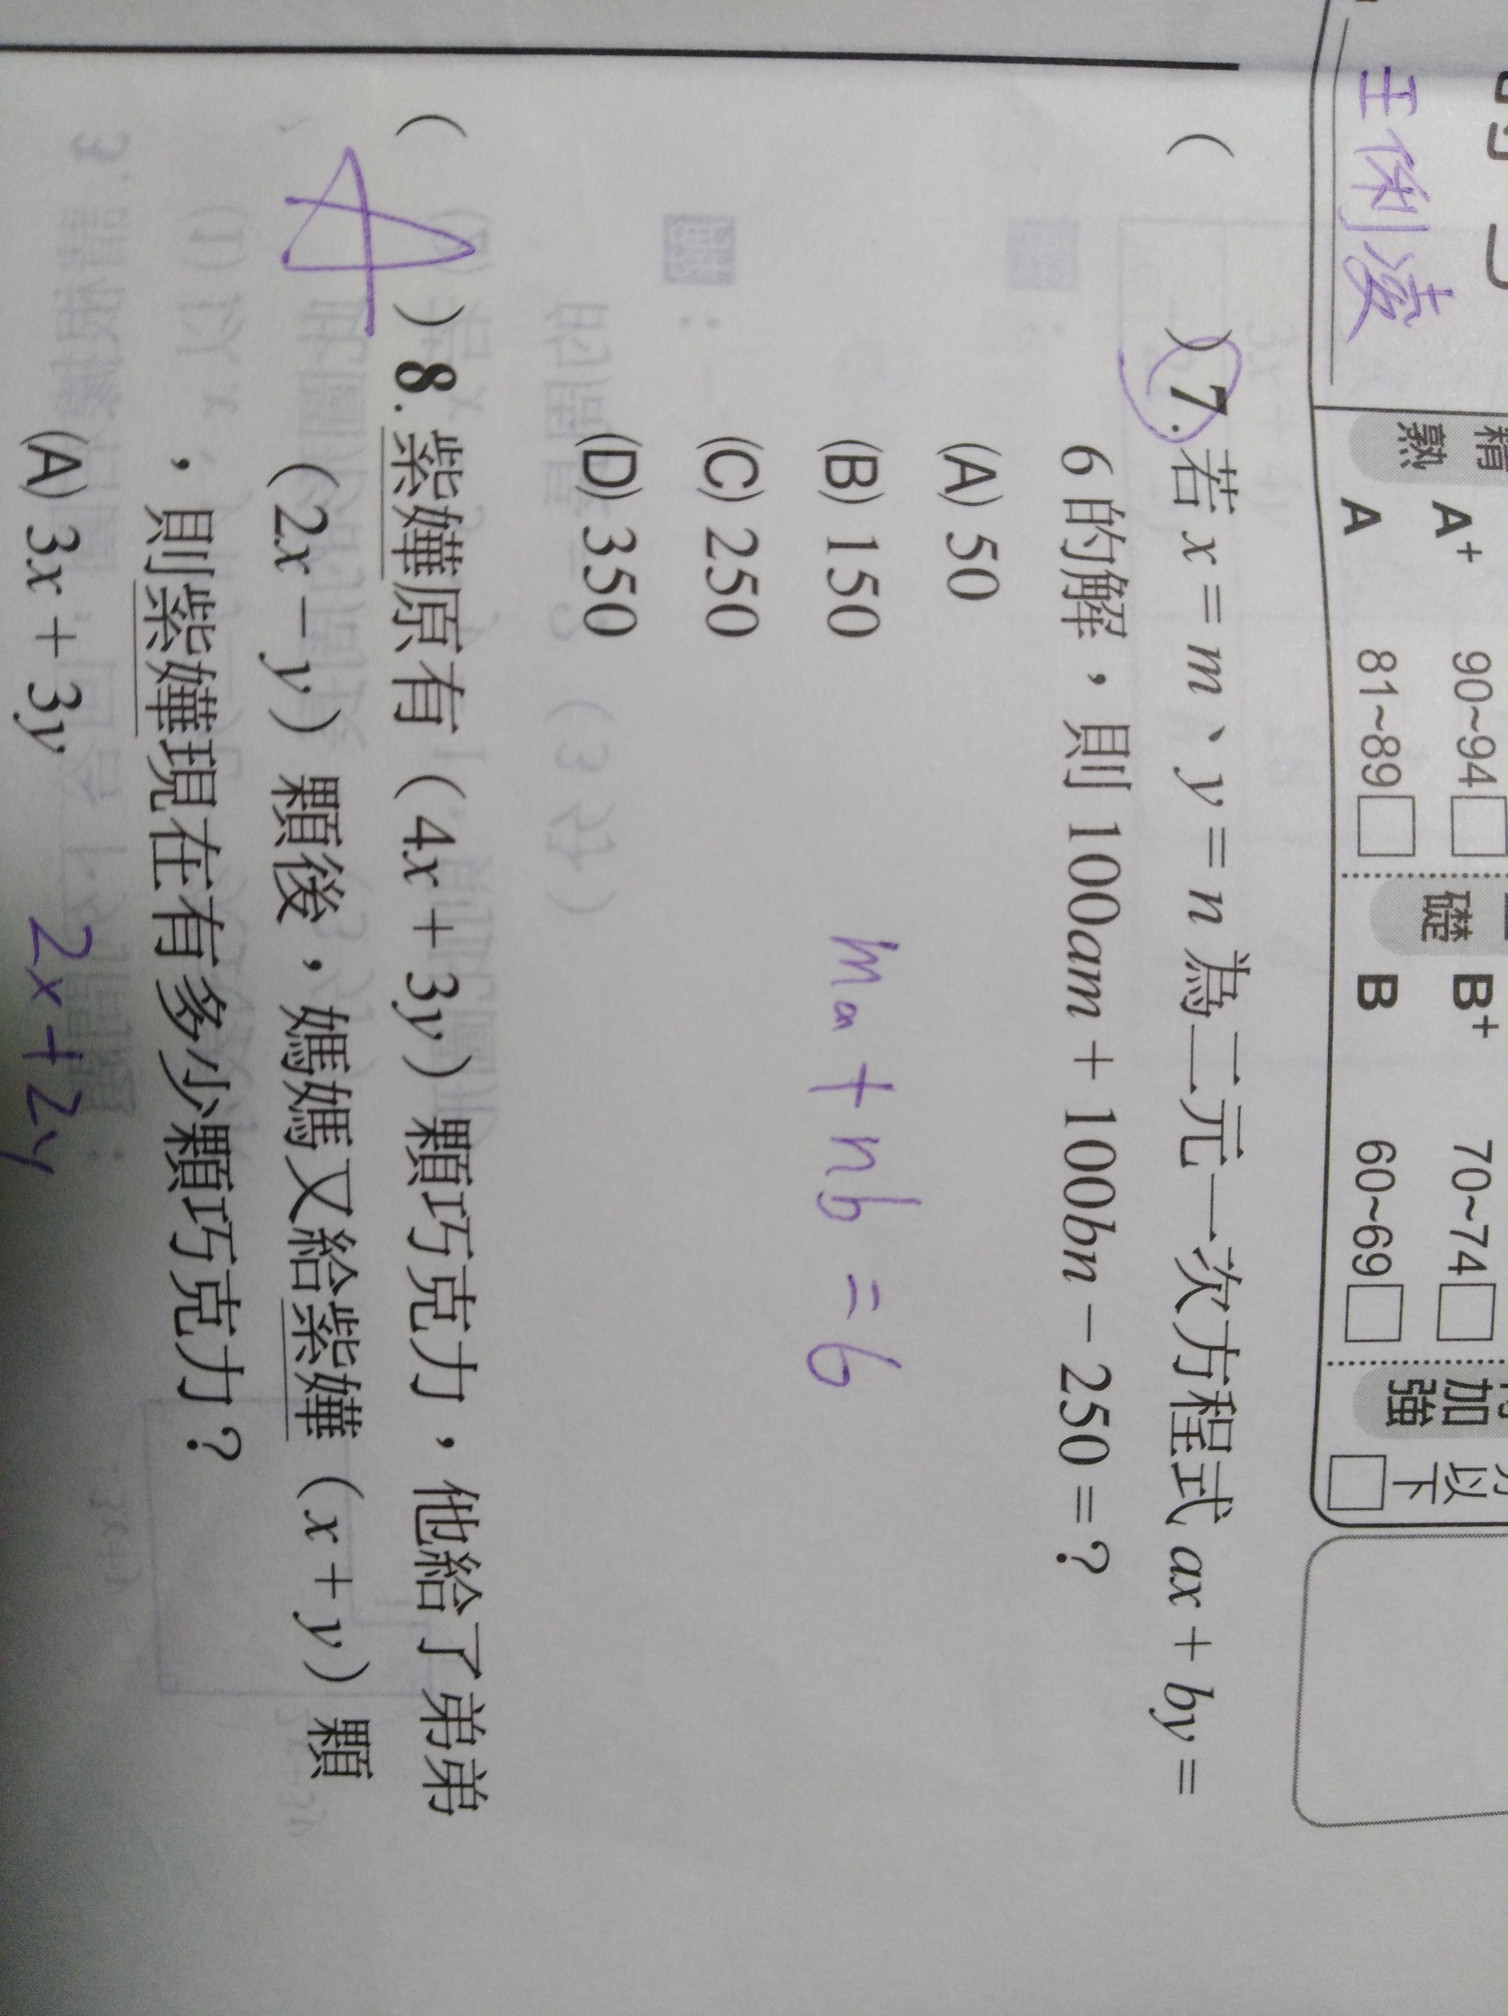 王俐淩
精熟 A⁺ 90~94□ 礎 B⁺ 70~74□ 加強 以下□
A 81~89□ B 60~69□
( )7.若 x = m、y = n 為二元一次方程式 ax + by =
6 的解，則 100am + 100bn − 250 = ?
(A) 50
(B) 150
(C) 250
(D) 350
ma + nb = 6
( A )8.紫嬅原有（4x + 3y）顆巧克力，他給了弟弟
（2x − y）顆後，媽媽又給紫嬅（x + y）顆
，則紫嬅現在有多少顆巧克力？
(A) 3x + 3y
2x + 2y